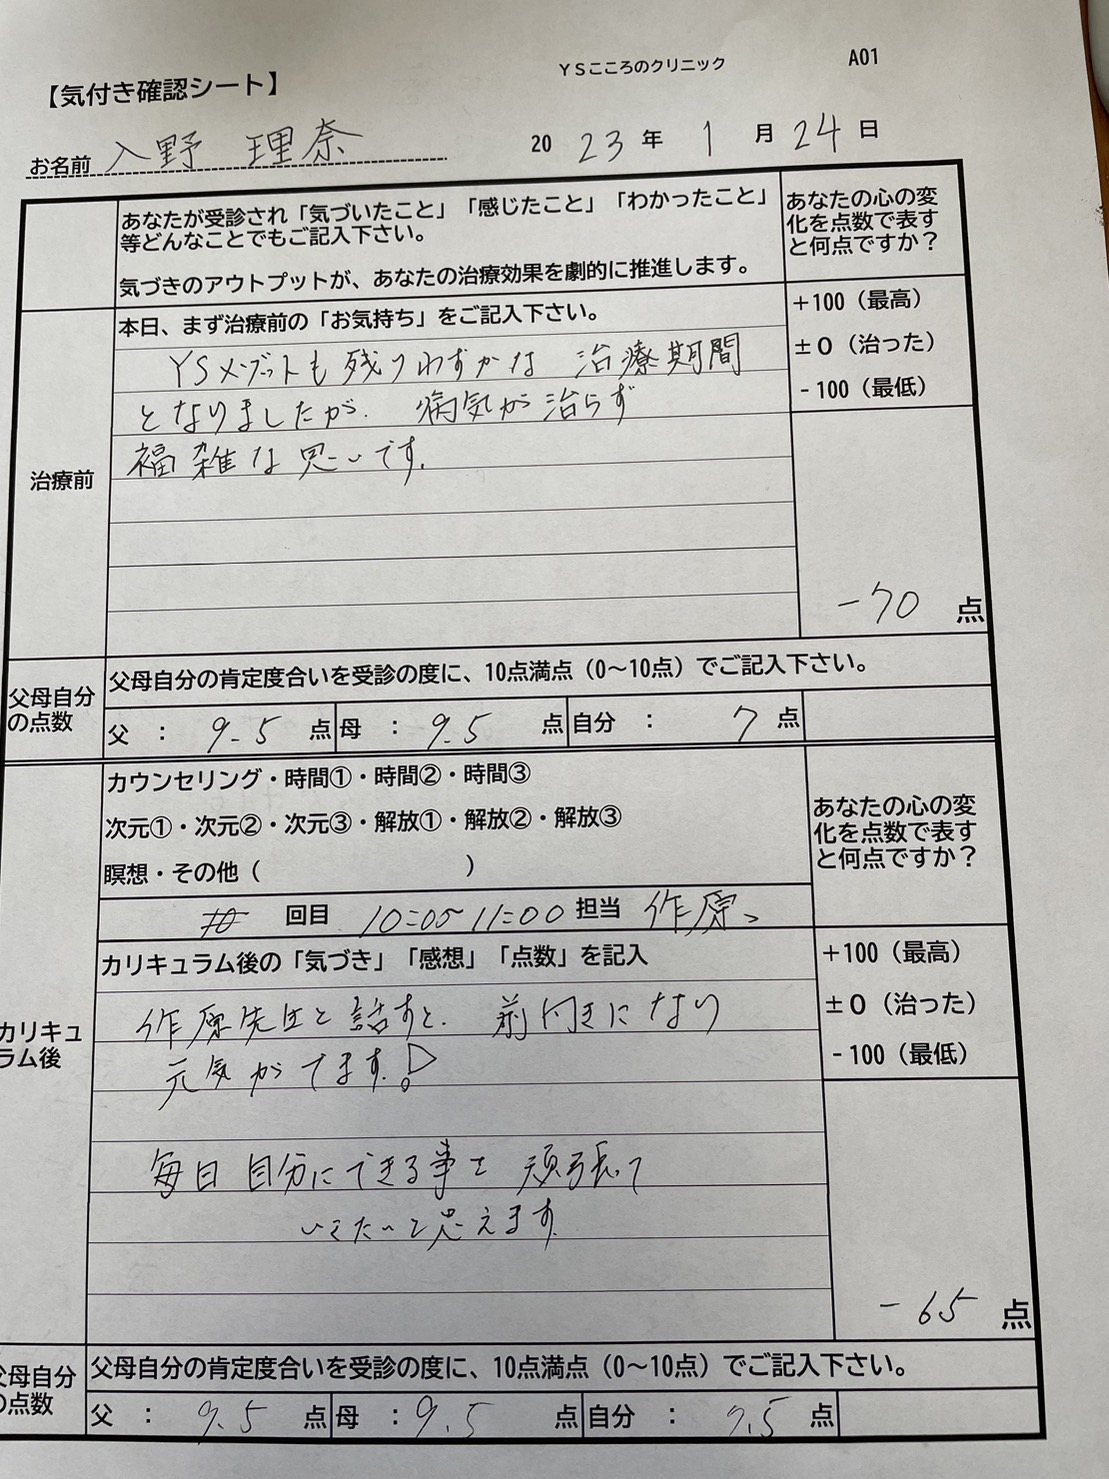 【気付き確認シート】 YSこころのクリニック A01
お名前 入野 理奈 20 23 年 1 月 24 日
あなたが受診され「気づいたこと」「感じたこと」「わかったこと」
等どんなことでもご記入下さい。
気づきのアウトプットが、あなたの治療効果を劇的に推進します。
あなたの心の変
化を点数で表す
と何点ですか？
治療前
本日、まず治療前の「お気持ち」をご記入下さい。
YSメゾットも残りわずかな 治療期間
となりましたが、 病気が治らず
福雑な思いです。
+100（最高）
±0（治った）
-100（最低）
-70 点
父母自分
の点数
父母自分の肯定度合いを受診の度に、10点満点（0～10点）でご記入下さい。
父 ： 9.5 点 母 ： 9.5 点 自分 ： 7 点
カウンセリング・時間①・時間②・時間③
次元①・次元②・次元③・解放①・解放②・解放③
瞑想・その他（ ）
回目 10:05 11:00 担当 作原
あなたの心の変
化を点数で表す
と何点ですか？
カリキュ
ラム後
カリキュラム後の「気づき」「感想」「点数」を記入
作原先生と話すと、 前付きになり
元気がでます！
毎日 自分にできる事を 頑張って
いきたいと思えます。
+100（最高）
±0（治った）
-100（最低）
-65 点
父母自分
の点数
父母自分の肯定度合いを受診の度に、10点満点（0～10点）でご記入下さい。
父 ： 9.5 点 母 ： 9.5 点 自分 ： 7.5 点